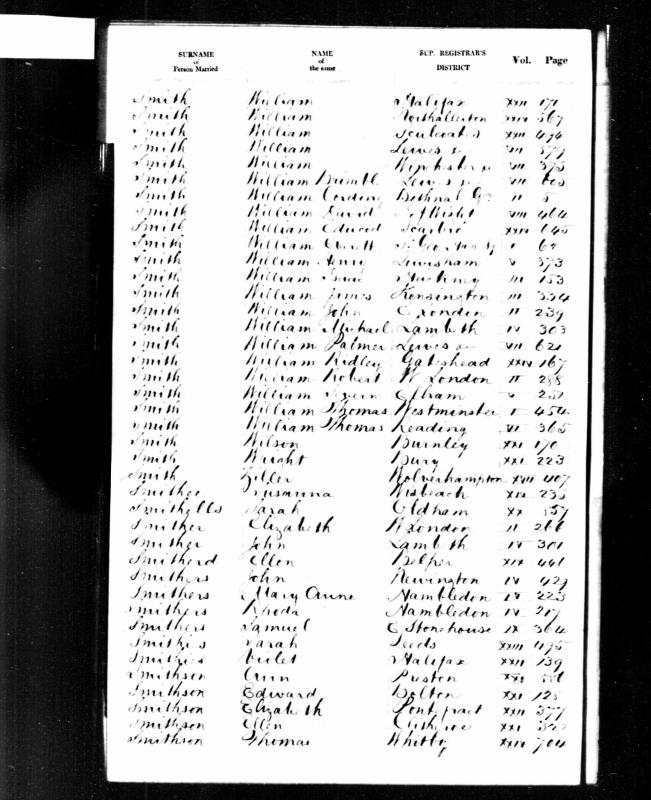 SURNAME of Person Married NAME of the same SUP. REGISTRAR'S DISTRICT Vol. Page
Smith William Halifax XXII 171
Smith William Northallerton XXIV 567
Smith William XXII 494
Smith William Lewes VII 577
Smith William Winchester VII 375
Smith William Lewes VII
Smith William Bethnal Gn II 5
Smith William David I of Wight VIII 464
Smith William Edward Scarbro XXIV 645
Smith William V 62
Smith William Henry Lewisham V 373
Smith William Hackney III 153
Smith William James Kensington III 334
Smith William John E London II 239
Smith William Michael Lambeth IV 303
Smith William Palmer Lewes VII 621
Smith William Ridley Gateshead XXIV 167
Smith William Robert W London II 288
Smith William Eltham V 251
Smith William Thomas Westminster I 454
Smith William Thomas Reading VI 365
Smith Wilson Burnley XXI 170
Smith Wright Bury XXI 223
Smith Ziller Wolverhampton XVII 407
Smithee Susanna Wisbeach XIV 235
Smithells Sarah Oldham XX 857
Smither Elizabeth W London II 266
Smither John Lambeth IV 301
Smitherd Ellen Belper XIX 441
Smithers John Newington IV 429
Smithers Mary Anne Hambledon IV 223
Smithers Rhoda Hambledon IV 217
Smithers Samuel E Stonehouse IX 364
Smithies Sarah Leeds XXIII 495
Smithies Violet Halifax XXII 139
Smithson Ann Preston XXI
Smithson Edward Bolton XXI 125
Smithson Elizabeth Pontefract XXII 377
Smithson Ellen XXI
Smithson Thomas Whitby XXIV 704